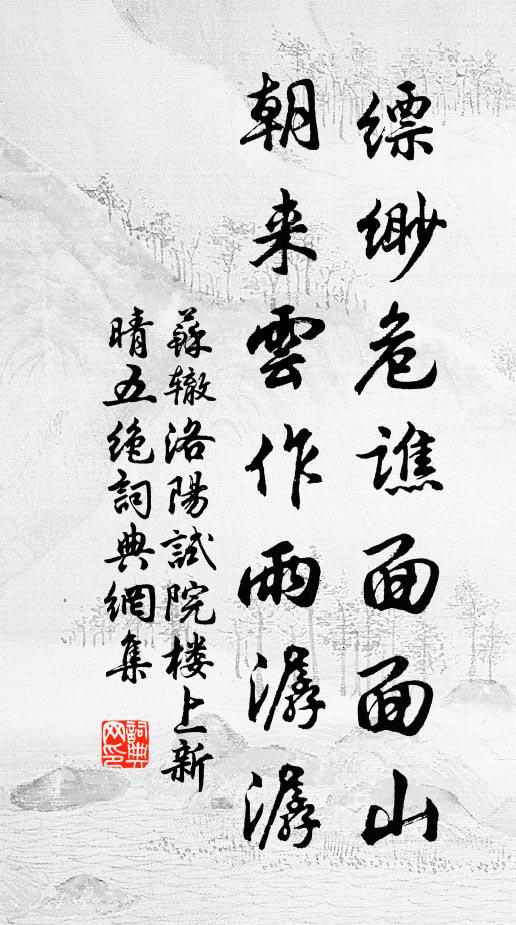 缥缈危譙面面山
朝来雲作雨潺潺
蘇辙洛陽試院楼上新
晴五绝詞典網集
詞典
网印